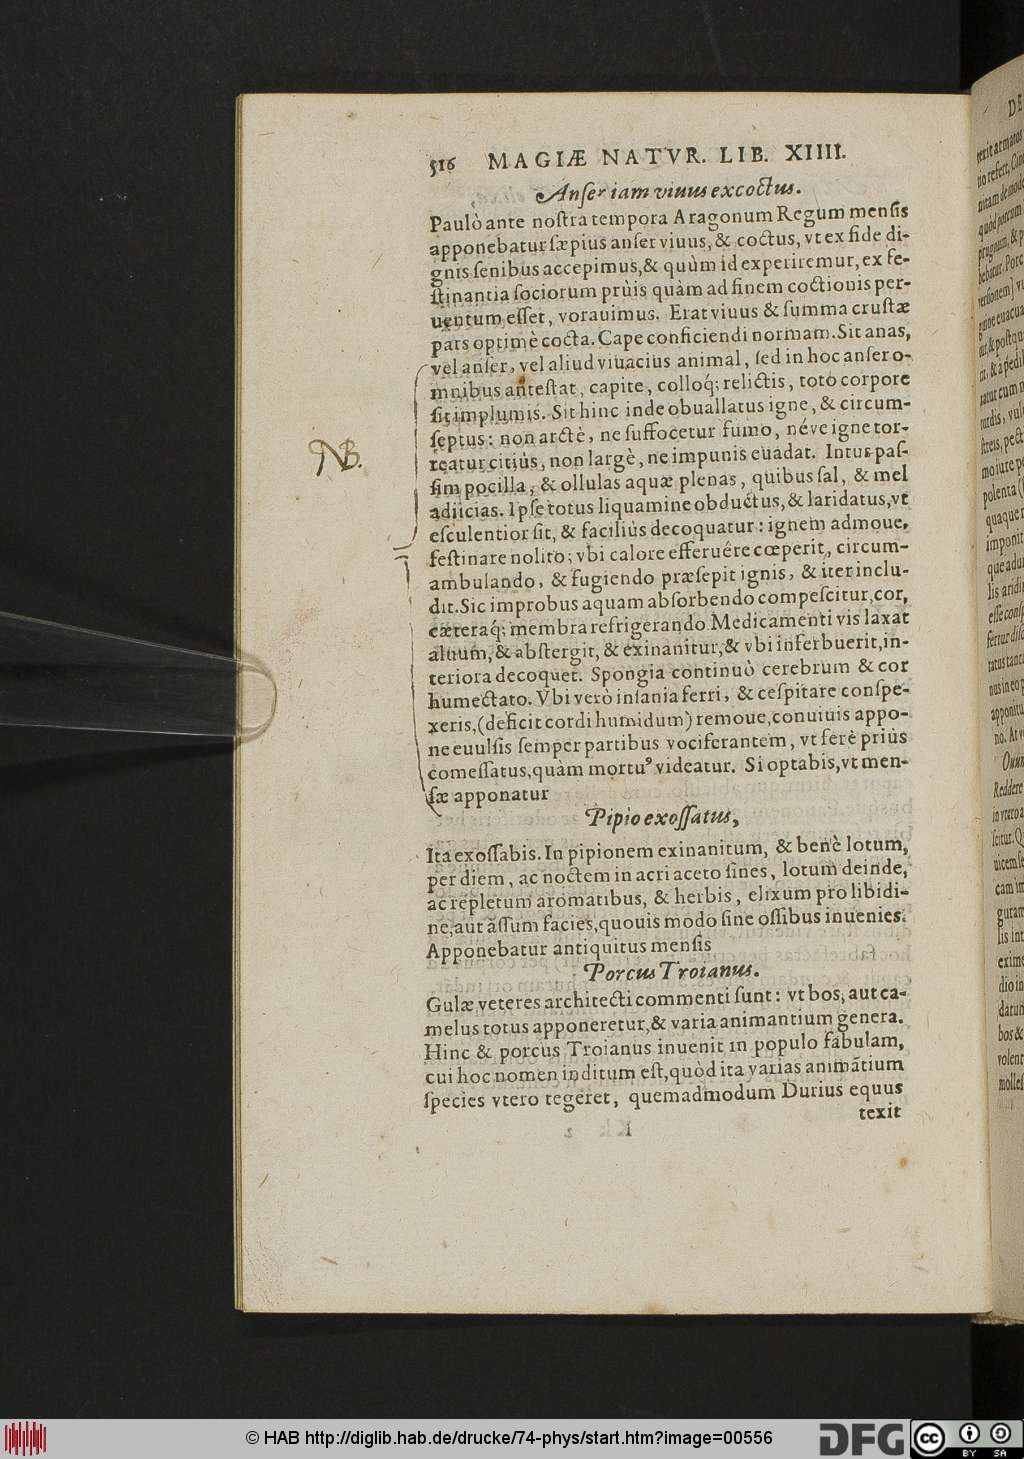 516 MAGIÆ NATVR. LIB. XIIII.
Anſer iam viuus excoctus.
Paulò ante noſtra tempora Aragonum Regum menſis
apponebatur ſæpius anſer viuus, & coctus, vt ex fide di-
gnis ſenibus accepimus, & quùm id experiremur, ex fe-
ſtinantia ſociorum priùs quàm ad finem coctionis per-
uentum eſſet, vorauimus. Erat viuus & ſumma cruſtæ
pars optimè cocta. Cape conficiendi normam. Sit anas,
vel anſer, vel aliud viuacius animal, ſed in hoc anſer o-
mnibus anteſtat, capite, colloq́; relictis, toto corpore
ſit implumis. Sit hinc inde obuallatus igne, & circum-
ſeptus: non arctè, ne ſuffocetur fumo, néve igne tor-
NB.
reatur citiùs, non largè, ne impunis euadat. Intus paſ-
ſim pocilla, & ollulas aquæ plenas, quibus ſal, & mel
adiicias. Ipſe totus liquamine obductus, & laridatus, vt
eſculentior ſit, & faciliùs decoquatur: ignem admoue,
feſtinare nolito; vbi calore efferuére cœperit, circum-
ambulando, & fugiendo præſepit ignis, & iter inclu-
dit. Sic improbus aquam abſorbendo compeſcitur, cor,
cæteraq́; membra refrigerando. Medicamenti vis laxat
aluum, & abſtergit, & exinanitur, & vbi inferbuerit, in-
teriora decoquet. Spongia continuò cerebrum & cor
humectato. Vbi verò inſania ferri, & ceſpitare conſpe-
xeris, (deficit cordi humidum) remoue, conuiuis appo-
ne euulſis ſemper partibus vociferantem, vt ferè priùs
comeſſatus, quàm mortuꝰ videatur. Si optabis, vt men-
ſæ apponatur
Pipio exoſſatus,
Ita exoſſabis. In pipionem exinanitum, & benè lotum,
per diem, ac noctem in acri aceto ſines, lotum deinde,
ac repletum aromatibus, & herbis, elixum pro libidi-
ne, aut aſſum facies, quouis modo ſine oſſibus inuenies.
Apponebatur antiquitus menſis
Porcus Troianus.
Gulæ veteres architecti commenti ſunt: vt bos, aut ca-
melus totus apponeretur, & varia animantium genera.
Hinc & porcus Troianus inuenit in populo fabulam,
cui hoc nomen inditum eſt, quòd ita varias animātium
ſpecies vtero tegeret, quemadmodum Durius equus
texit
© HAB http://diglib.hab.de/drucke/74-phys/start.htm?image=00556
DFG
cc BY SA